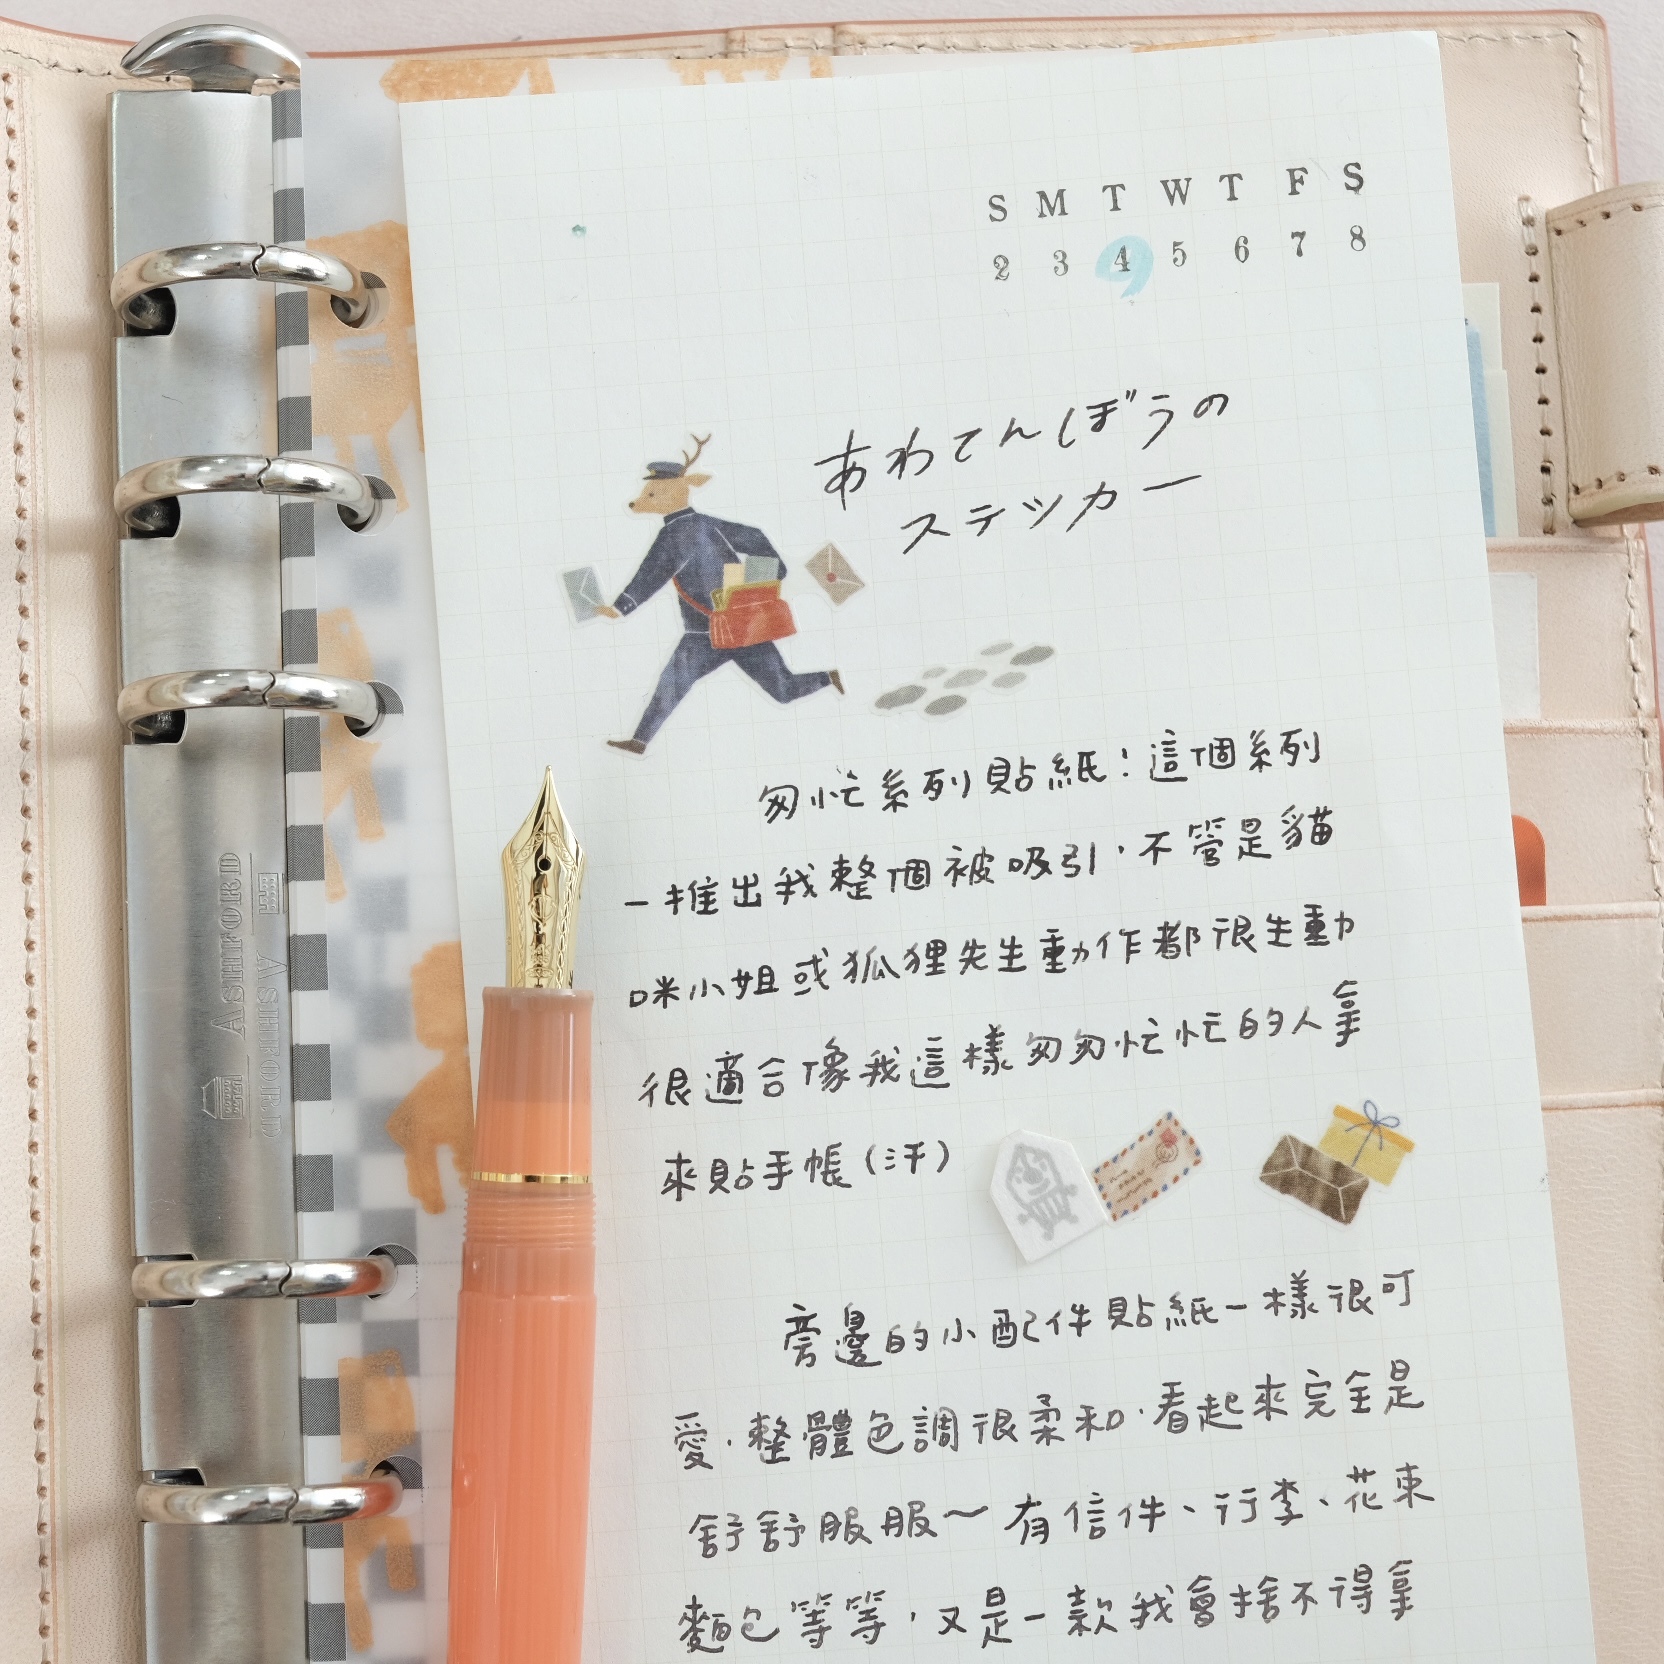 S M T W T F S
2 3 4 5 6 7 8
あわてんぼうの
ステッカー
匆忙系列貼紙：這個系列
一推出我整個被吸引，不管是貓
咪小姐或狐狸先生動作都很生動
很適合像我這樣匆匆忙忙的人拿
來貼手帳（汗）
旁邊的小配件貼紙一樣很可
愛，整體色調很柔和，看起來完全是
舒舒服服～有信件、行李、花束
麵包等等，又是一款我會捨不得拿
ASHFORD
ASHFORD